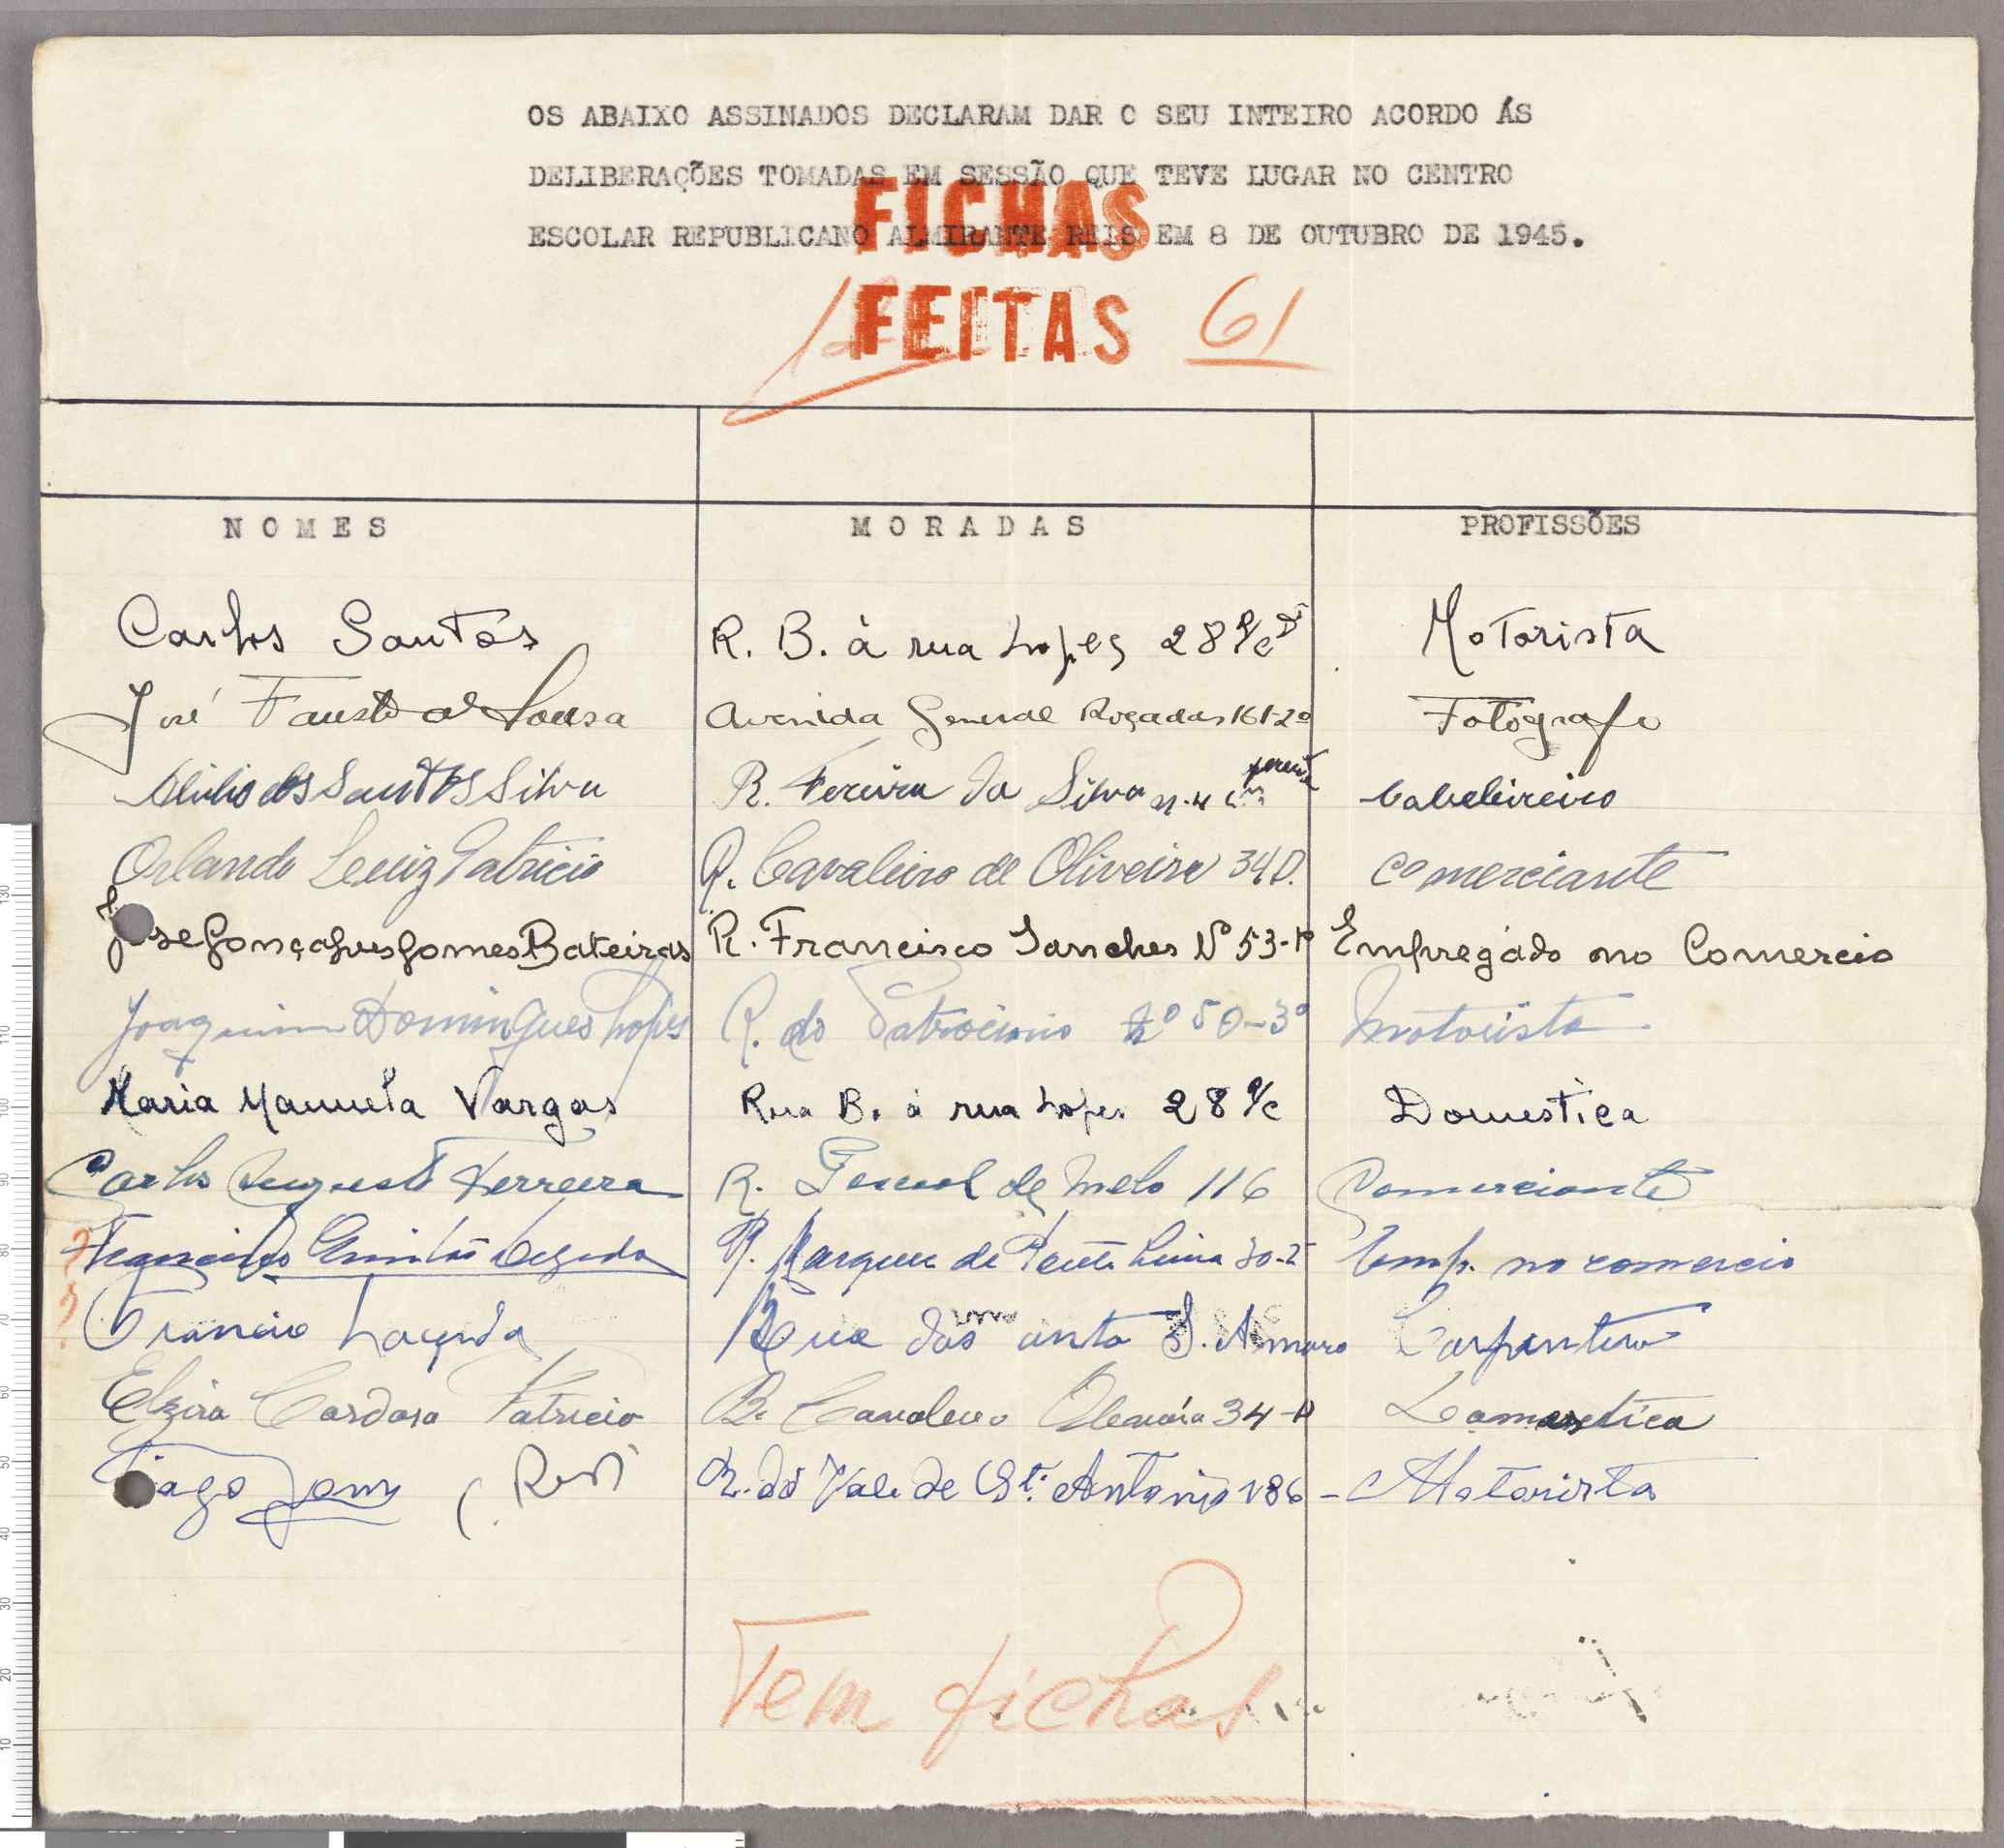 OS ABAIXO ASSINADOS DECLARAM DAR O SEU INTEIRO ACORDO ÁS
DELIBERAÇÕES TOMADAS EM SESSÃO QUE TEVE LUGAR NO CENTRO
ESCOLAR REPUBLICANO ALMIRANTE REIS EM 8 DE OUTUBRO DE 1945.
FICHAS
FEITAS 61
NOMES MORADAS PROFISSÕES
Carlos Santos R. B. à rua Lopes 28 R/c Dt Motorista
José Fausto de Sousa Avenida General Roçadas 161-2º Fotografo
Abilio dos Santos Silva R. Ferreira da Silva n. 4 Cabeleireiro
Orlando Luiz Patricio R. Cavaleiro de Oliveira 34 D. comerciante
José Gonçalves Gomes Bateiras R. Francisco Sanches Nº 53- Empregado no Comercio
Joaquim Domingues Lopes R. do Patrocinio nº 50-3º Motorista
Maria Manuela Vargas Rua B. à rua Lopes 28 R/c Domestica
Carlos Augusto Ferreira R. General de Melo 116 Comerciante
Francisco R. Marquez de Ponte Lima 30-2º Emp. no comercio
Rua S. Amaro Carpinteiro
Elzira Cardoso Patricio R. Cavaleiro Oliveira 34- Domestica
Tiago R. do Vale de Stº Antonio 186 - Motorista
Tem fichas
130
110
100
90
80
70
60
50
40
30
20
10